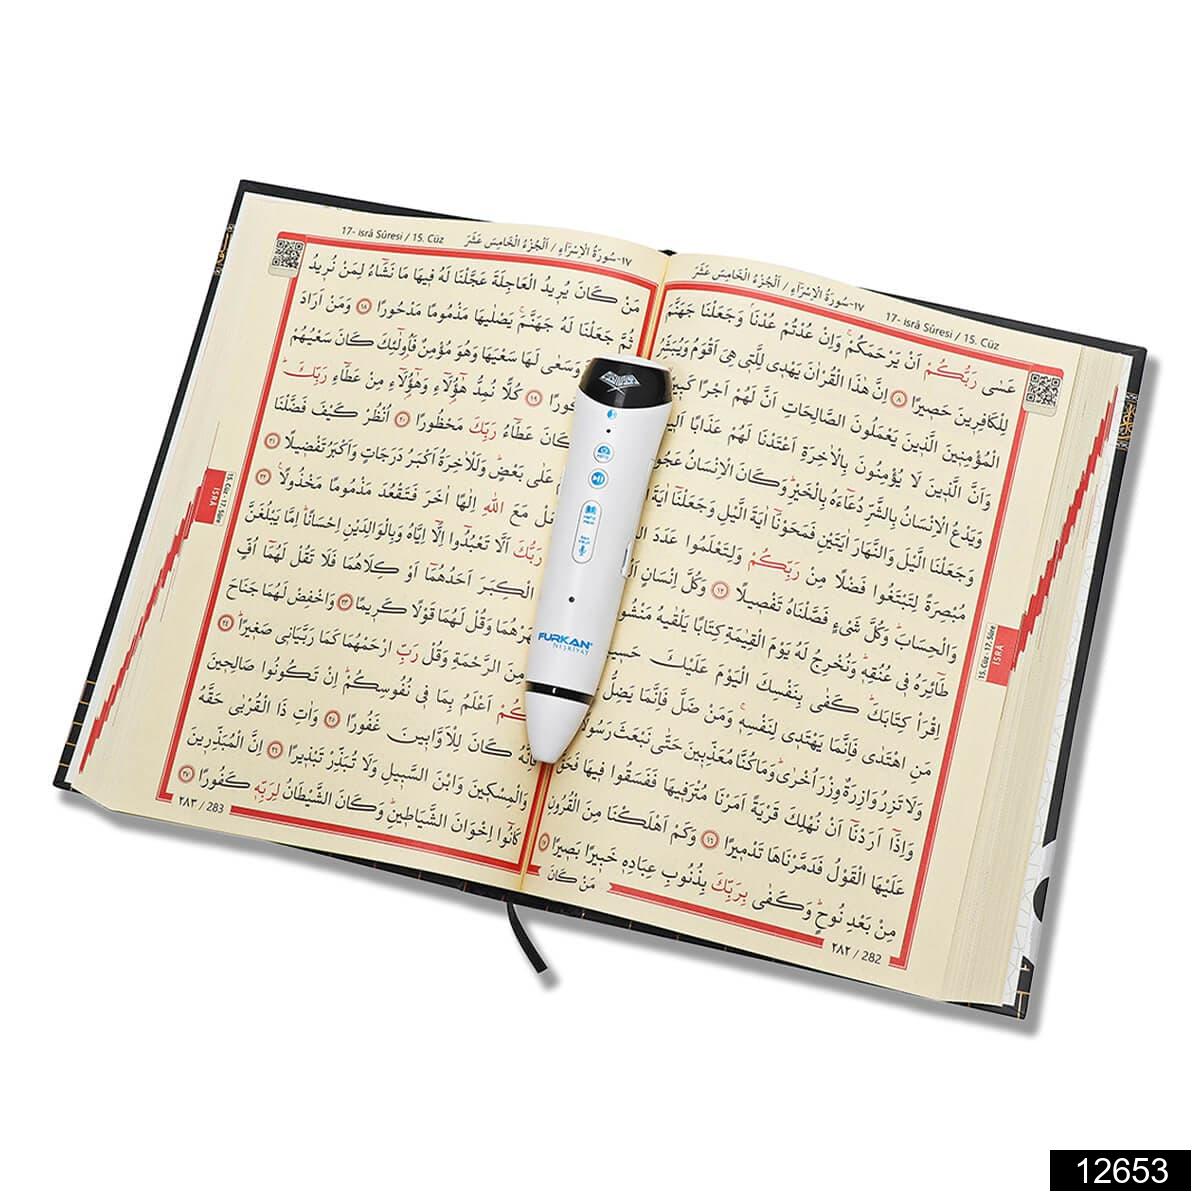 ١٧-سُورَةُ الْاِسْرَاءِ / اَلْجُزْءُ الْخَامِسَ عَشَرَ 17- isrâ Sûresi / 15. Cüz
عَسٰى رَبُّكُمْ اَنْ يَرْحَمَكُمْۚ وَاِنْ عُدْتُمْ عُدْنَاۢ وَجَعَلْنَا جَهَنَّمَ
لِلْكَافِر۪ينَ حَص۪يرًا ٨ اِنَّ هٰذَا الْقُرْاٰنَ يَهْد۪ى لِلَّت۪ى هِىَ اَقْوَمُ وَيُبَشِّرُ
الْمُؤْمِن۪ينَ الَّذ۪ينَ يَعْمَلُونَ الصَّالِحَاتِ اَنَّ لَهُمْ اَجْرًا
وَاَنَّ الَّذ۪ينَ لَا يُؤْمِنُونَ بِالْاٰخِرَةِ اَعْتَدْنَا لَهُمْ عَذَابًا
وَيَدْعُ الْاِنْسَانُ بِالشَّرِّ دُعَٓاءَهُ بِالْخَيْرِۜ وَكَانَ الْاِنْسَانُ
وَجَعَلْنَا الَّيْلَ وَالنَّهَارَ اٰيَتَيْنِ فَمَحَوْنَٓا اٰيَةَ الَّيْلِ وَجَعَلْنَٓا اٰيَةَ
مُبْصِرَةً لِتَبْتَغُوا فَضْلًا مِنْ رَبِّكُمْ وَلِتَعْلَمُوا عَدَدَ
وَالْحِسَابَۜ وَكُلَّ شَىْءٍ فَصَّلْنَاهُ تَفْص۪يلًا ١٢ وَكُلَّ اِنْسَانٍ
طَٓائِرَهُ ف۪ى عُنُقِه۪ۜ وَنُخْرِجُ لَهُ يَوْمَ الْقِيٰمَةِ كِتَابًا يَلْقٰيهُ
اِقْرَأْ كِتَابَكَۜ كَفٰى بِنَفْسِكَ الْيَوْمَ عَلَيْكَ
مَنِ اهْتَدٰى فَاِنَّمَا يَهْتَد۪ى لِنَفْسِه۪ۚ وَمَنْ ضَلَّ فَاِنَّمَا يَضِلُّ
وَلَا تَزِرُ وَازِرَةٌ وِزْرَ اُخْرٰىۜ وَمَا كُنَّا مُعَذِّب۪ينَ حَتّٰى نَبْعَثَ
وَاِذَٓا اَرَدْنَٓا اَنْ نُهْلِكَ قَرْيَةً اَمَرْنَا مُتْرَف۪يهَا فَفَسَقُوا ف۪يهَا فَحَقَّ
عَلَيْهَا الْقَوْلُ فَدَمَّرْنَاهَا تَدْم۪يرًا ١٦ وَكَمْ اَهْلَكْنَا مِنَ الْقُرُونِ
مِنْ بَعْدِ نُوحٍۜ وَكَفٰى بِرَبِّكَ بِذُنُوبِ عِبَادِه۪ خَب۪يرًا بَص۪يرًا ١٧
مَنْ كَانَ
٢٨٢ / 282
15. Cüz - 17. Sûre
İSRÂ
17- isrâ Sûresi / 15. Cüz ١٧-سُورَةُ الْاِسْرَاءِ / اَلْجُزْءُ الْخَامِسَ عَشَرَ
مَنْ كَانَ يُر۪يدُ الْعَاجِلَةَ عَجَّلْنَا لَهُ ف۪يهَا مَا نَشَٓاءُ لِمَنْ نُر۪يدُ
ثُمَّ جَعَلْنَا لَهُ جَهَنَّمَۚ يَصْلٰيهَا مَذْمُومًا مَدْحُورًا ١٨ وَمَنْ اَرَادَ
وَسَعٰى لَهَا سَعْيَهَا وَهُوَ مُؤْمِنٌ فَاُو۬لٰٓئِكَ كَانَ سَعْيُهُمْ
١٩ كُلًّا نُمِدُّ هٰٓؤُ۬لَٓاءِ وَهٰٓؤُ۬لَٓاءِ مِنْ عَطَٓاءِ رَبِّكَۜ
كَانَ عَطَٓاءُ رَبِّكَ مَحْظُورًا ٢٠ اُنْظُرْ كَيْفَ فَضَّلْنَا
عَلٰى بَعْضٍۜ وَلَلْاٰخِرَةُ اَكْبَرُ دَرَجَاتٍ وَاَكْبَرُ تَفْض۪يلًا ٢١
مَعَ اللّٰهِ اِلٰهًا اٰخَرَ فَتَقْعُدَ مَذْمُومًا مَخْذُولًا۟ ٢٢
رَبُّكَ اَلَّا تَعْبُدُٓوا اِلَّٓا اِيَّاهُ وَبِالْوَالِدَيْنِ اِحْسَانًاۜ اِمَّا يَبْلُغَنَّ
الْكِبَرَ اَحَدُهُمَٓا اَوْ كِلَاهُمَا فَلَا تَقُلْ لَهُمَٓا اُفٍّ
وَقُلْ لَهُمَا قَوْلًا كَر۪يمًا ٢٣ وَاخْفِضْ لَهُمَا جَنَاحَ
مِنَ الرَّحْمَةِ وَقُلْ رَبِّ ارْحَمْهُمَا كَمَا رَبَّيَان۪ى صَغ۪يرًاۜ ٢٤
اَعْلَمُ بِمَا ف۪ى نُفُوسِكُمْۜ اِنْ تَكُونُوا صَالِح۪ينَ
فَاِنَّهُ كَانَ لِلْاَوَّاب۪ينَ غَفُورًا ٢٥ وَاٰتِ ذَا الْقُرْبٰى حَقَّهُ
وَالْمِسْك۪ينَ وَابْنَ السَّب۪يلِ وَلَا تُبَذِّرْ تَبْذ۪يرًا ٢٦ اِنَّ الْمُبَذِّر۪ينَ
كَانُٓوا اِخْوَانَ الشَّيَاط۪ينِۜ وَكَانَ الشَّيْطَانُ لِرَبِّه۪ كَفُورًا ٢٧
٢٨٣ / 283
15. Cüz - 17. Sûre
İSRÂ
FURKAN
NEŞRİYAT
12653